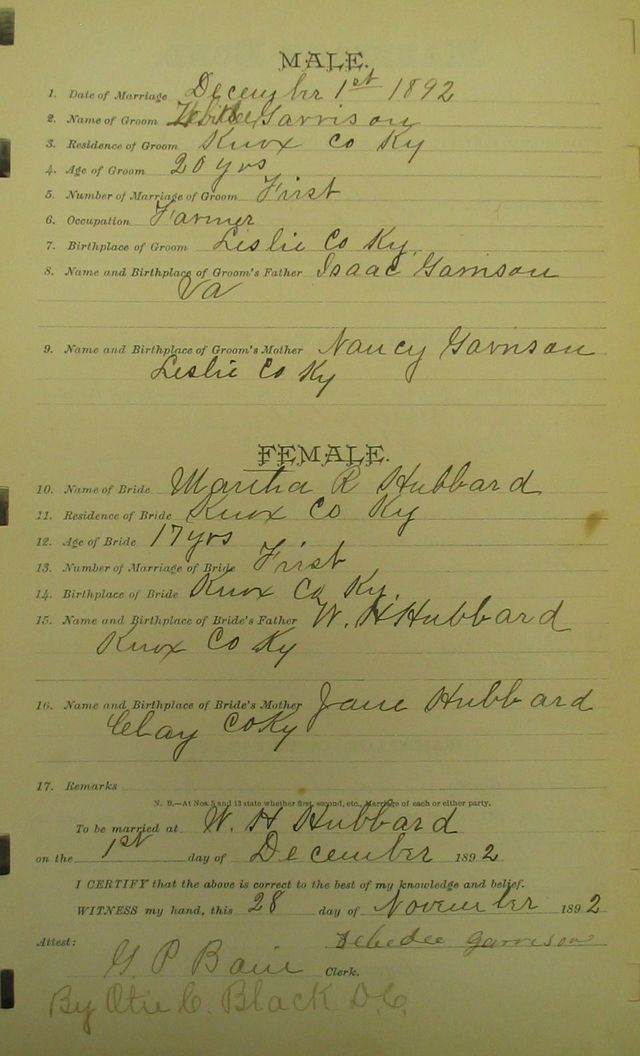 MALE.
1. Date of Marriage December 1st 1892
2. Name of Groom Garrison
3. Residence of Groom Knox Co Ky
4. Age of Groom 20 yrs
5. Number of Marriage of Groom First
6. Occupation Farmer
7. Birthplace of Groom Leslie Co Ky.
8. Name and Birthplace of Groom's Father Isaac Garrison
Va
9. Name and Birthplace of Groom's Mother Nancy Garrison
Leslie Co Ky
FEMALE.
10. Name of Bride Martha R Hubbard
11. Residence of Bride Knox Co Ky
12. Age of Bride 17 yrs
13. Number of Marriage of Bride First
14. Birthplace of Bride Knox Co Ky.
15. Name and Birthplace of Bride's Father W. H Hubbard
Knox Co Ky
16. Name and Birthplace of Bride's Mother Jane Hubbard
Clay Co Ky
17. Remarks
N. B.—At Nos. 5 and 13 state whether first, second, etc., Marriage of each or either party.
To be married at W. H Hubbard
on the 1st day of December 1892
I CERTIFY that the above is correct to the best of my knowledge and belief.
WITNESS my hand, this 28 day of November 1892
Attest: Zebedee Garrison
G. P Bain Clerk.
By Otie C. Black D.C.